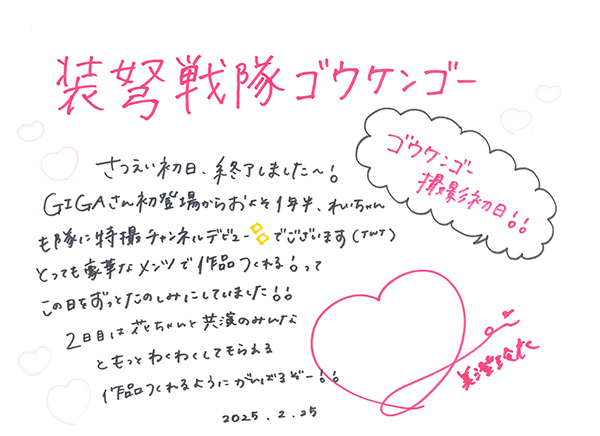 装弩戦隊ゴウケンゴー
ゴウケンゴー
撮影初日!!
さつえい初日、終了しました〜!
GIGAさん初登場からおよそ1年半、れいちゃん
も隊に特撮チャンネルデビューでございます(TWT)
とっても豪華なメンツで作品つくれる!って
この日をずっとたのしみにしていました!!
2日目は花ちゃんと共演のみんな
ともっとわくわくしてもらえる
作品つくれるようにがんばるぞー!!
2025.2.25